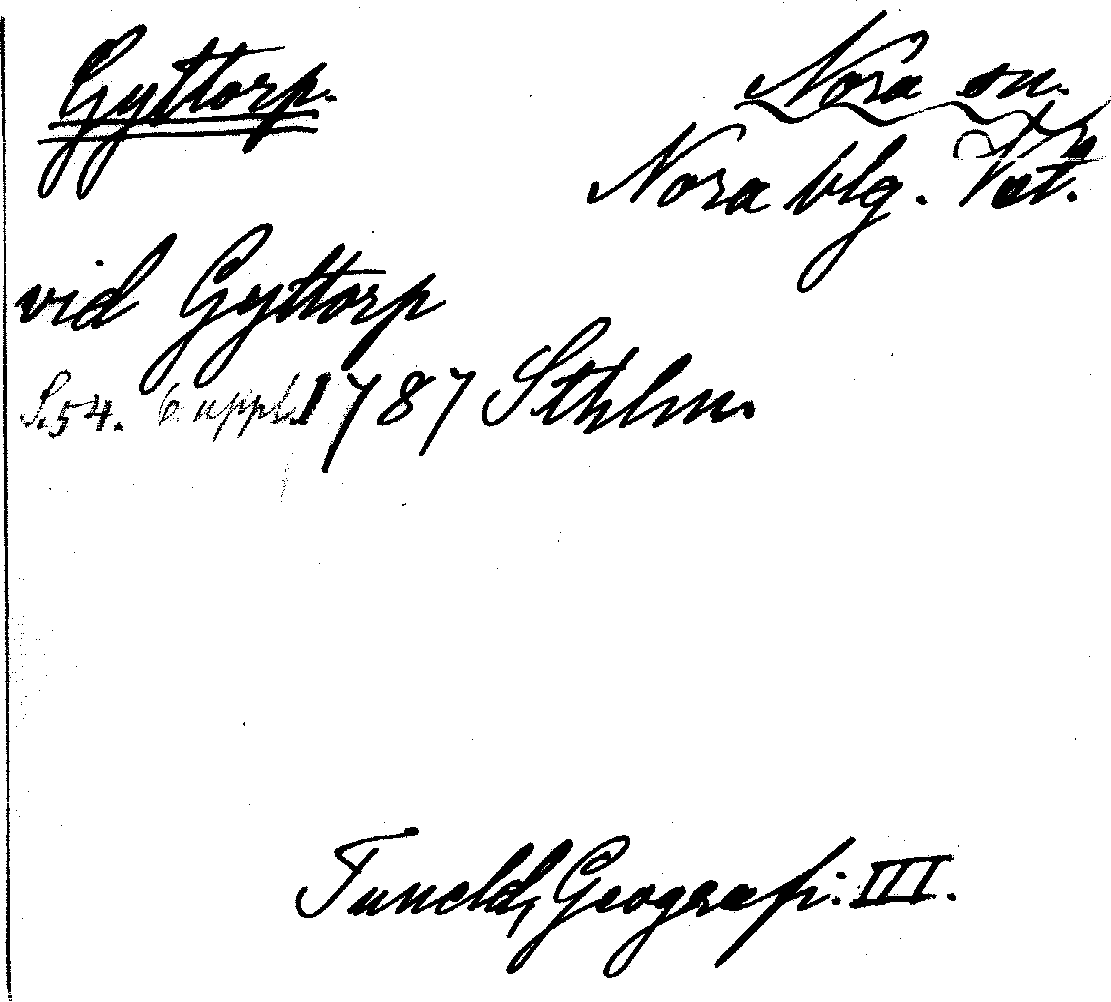 Gyttorp.
Nora sn.
Nora blg. Vst.
vid Gyttorp
S.54. 6. uppl. 1787 Sthlm.
Tuneld, Geografi. III.